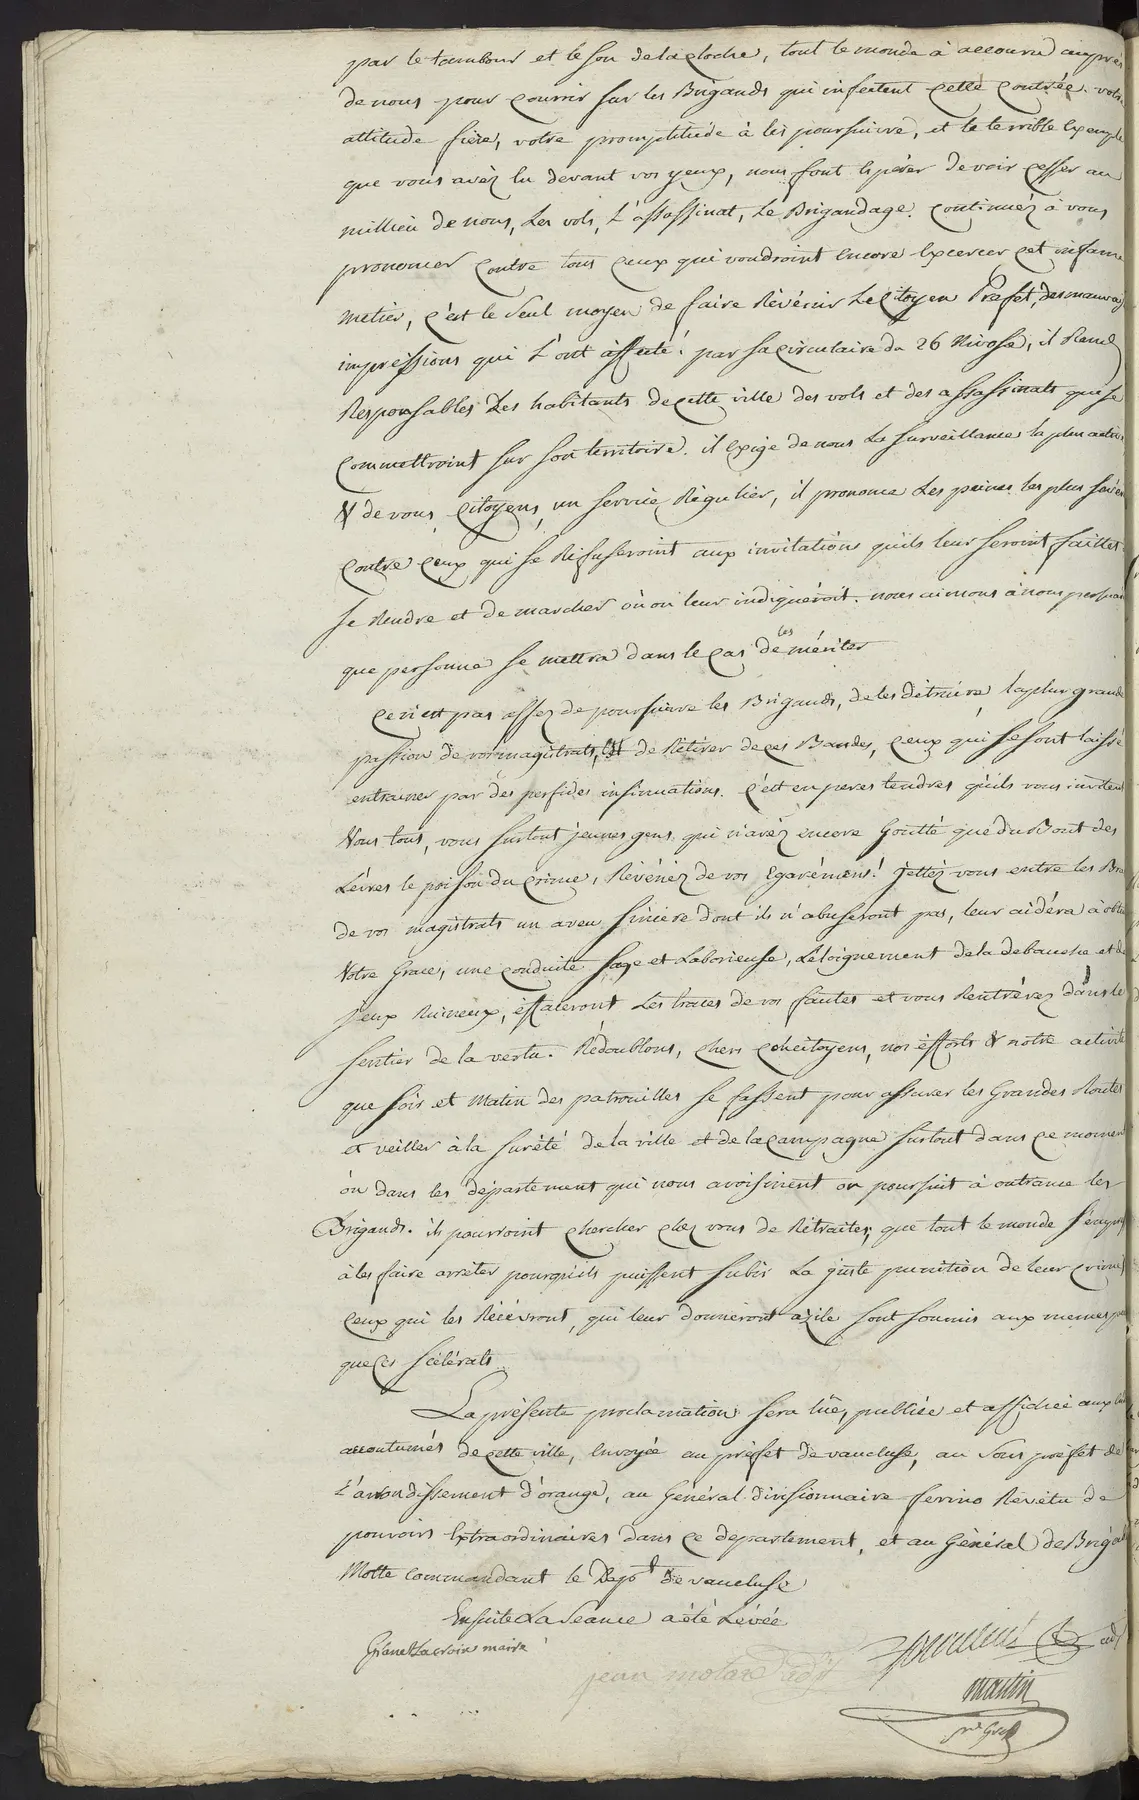 par le tambour et le son de la cloche, tout le monde à accouru auprès
de nous pour courrir sur les Brigands qui infectent cette contrée. votre
attitude fière, votre promptitude à les poursuivre, et le terrible Exemple
que vous avéz lu devant vos yeux, nous font éspérer de voir cesser au
millieu de nous, Les vols, L'assassinat, Le Brigandage. Continuéz à vous
prononcer contre tous ceux qui voudroint encore Exercer cet infame
metier, c'est le seul moyen de faire Révénir Le Citoyen Préfet, des mauvaises
impréssions qui L'ont affécté! par sa circulaire du 26 Nivose, il Rend
Résponsables Les habitants de cette ville des vols et des assassinats qui se
commettroint sur son territoire. il éxige de nous La surveillance la plus active
& de vous, Citoyens, un service Régulier, il prononce Les peines les plus sévères
contre ceux qui se Réfuseroint aux invitations qu'ils leur seroint faittes
se Rendre et de marcher où on leur indiquéroit. nous aimons à nous persuader
que personne se mettra dans le cas de les mériter
Ce n'est pas assez de poursuivre les Brigands, de les détruire, la plus grande
passion de vos magistrats, est de Rétirer de ces Bandes, ceux qui se sont laissé
entrainer par des perfides insinuations. c'est en peres tendres qu'ils vous invitent
Vous tous, vous surtout jeunes gens qui n'avéz encore Goutté que du Bout des
Lévres le poison du crime, Révénéz de vos Egaréméns! jettéz vous entre les Bras
de vos magistrats un aveu sincère dont ils n'abuseront pas, leur aidéra à obtenir
Votre Grace, une conduite sage et Laborieuse, L'éloignement de la débauche et des
jeux Ruineux, éffaceront Les traces de vos fautes et vous Rentrérez dans le
sentier de la vertu. Rédoublons, chers concitoyens, nos éfforts & notre activité
que soir et Matin des patrouilles se fassent pour assurer les Grandes Routes
et veiller à la surété de la ville et de la campagne surtout dans ce moment
ou dans les département qui nous avoisinent on poursuit à outrance les
Brigands. ils pourroint chercher chez vous de Rétraites, que tout le monde s'empresse
à les faire arrèter pourqu'ils puissent subir La juste punition de leur crimes
Ceux qui les Récévront, qui leur donneront azile sont soumis aux memes peines
que ces scélérats.
La présente proclamation sera lüe, publiée et affichée aux lieux
accoutumés de cette ville, Envoyée au préfet de vaucluse, au sous préfet de
L'arrondissement d'orange, au Général divisionnaire ferino Révétu de
pouvoirs Extraordinaires dans ce departement, et au Général de Brigade
Motte commandant le Dép.t de vaucluse
Ensuite La Séance a été Lévée
Granet Lacroix maire
jean molard adjt
martin